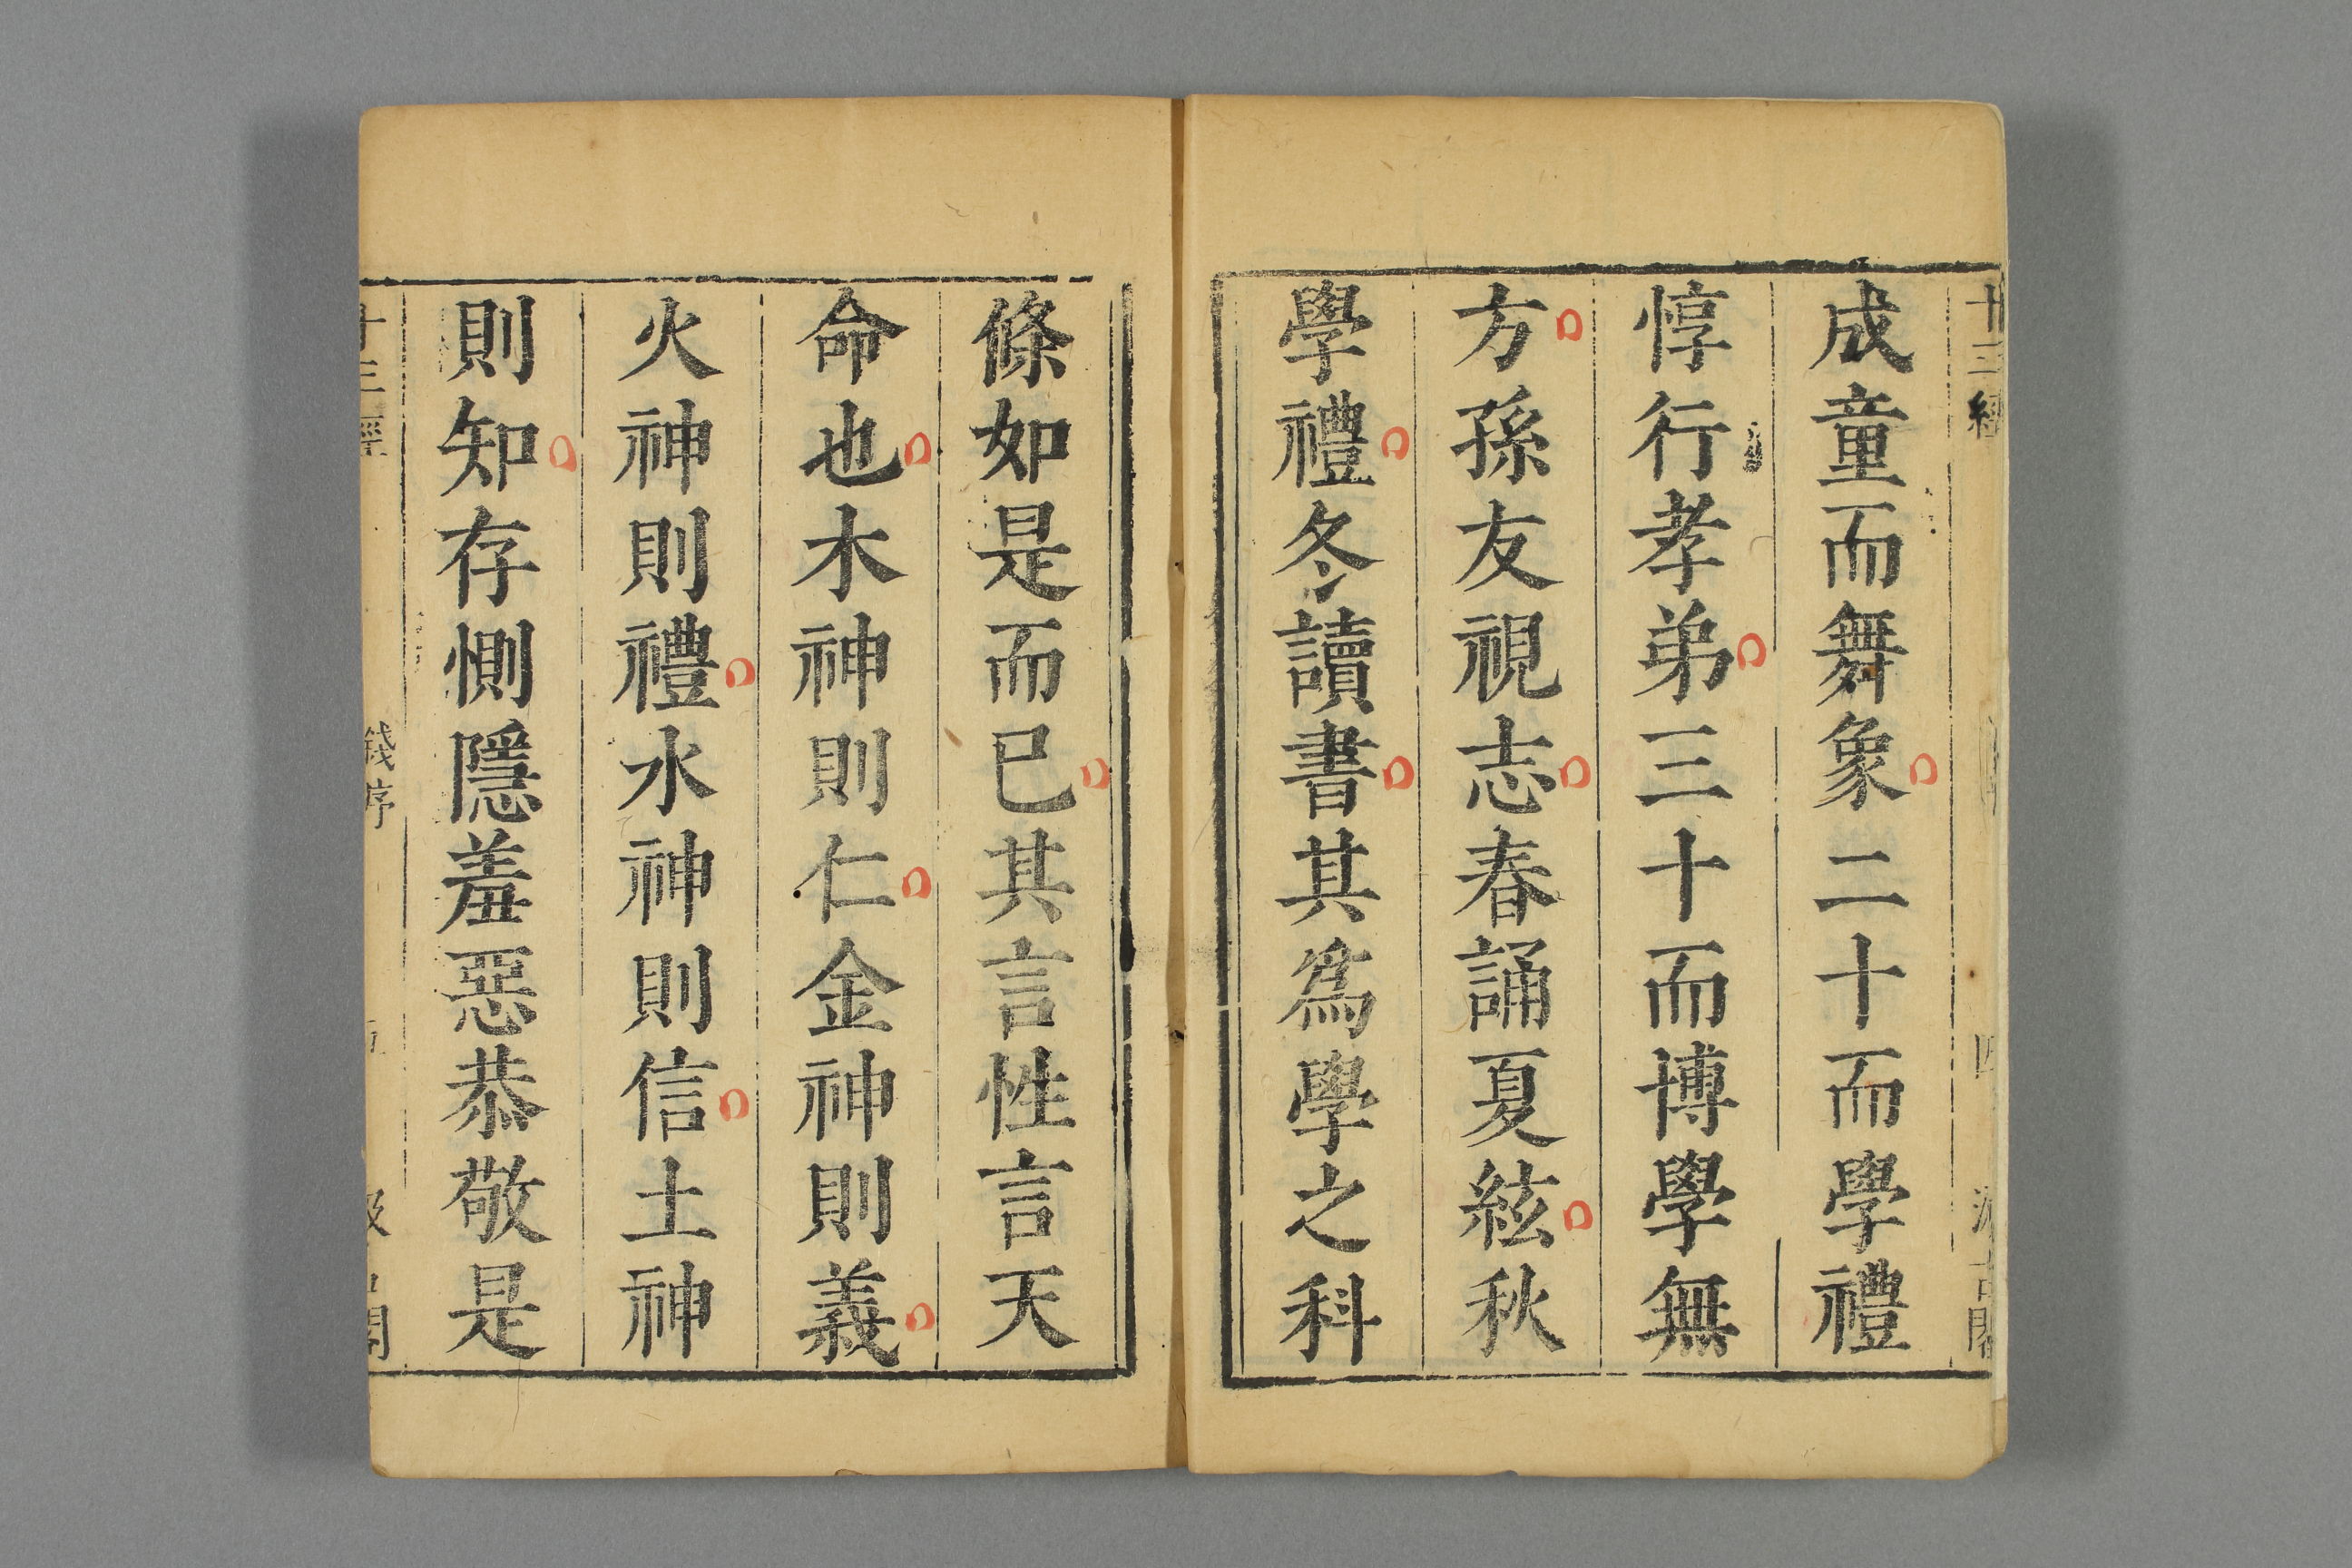 十三經
四
汲古閣
成童而舞象二十而學禮
惇行孝弟三十而博學無
方孫友視志春誦夏絃秋
學禮冬讀書其爲學之科
條如是而已其言性言天
命也木神則仁金神則義
火神則禮水神則信土神
則知存惻隱羞惡恭敬是
十三經
錢序
五
汲古閣